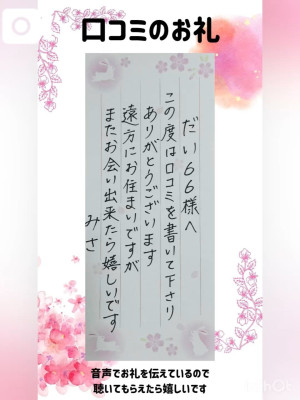 口コミのお礼
だい66様へ
この度は口コミを書いて下さり
ありがとうございます
遠方にお住まいですが
またお会い出来たら嬉しいです
みさ
音声でお礼を伝えているので
聴いてもらえたら嬉しいです